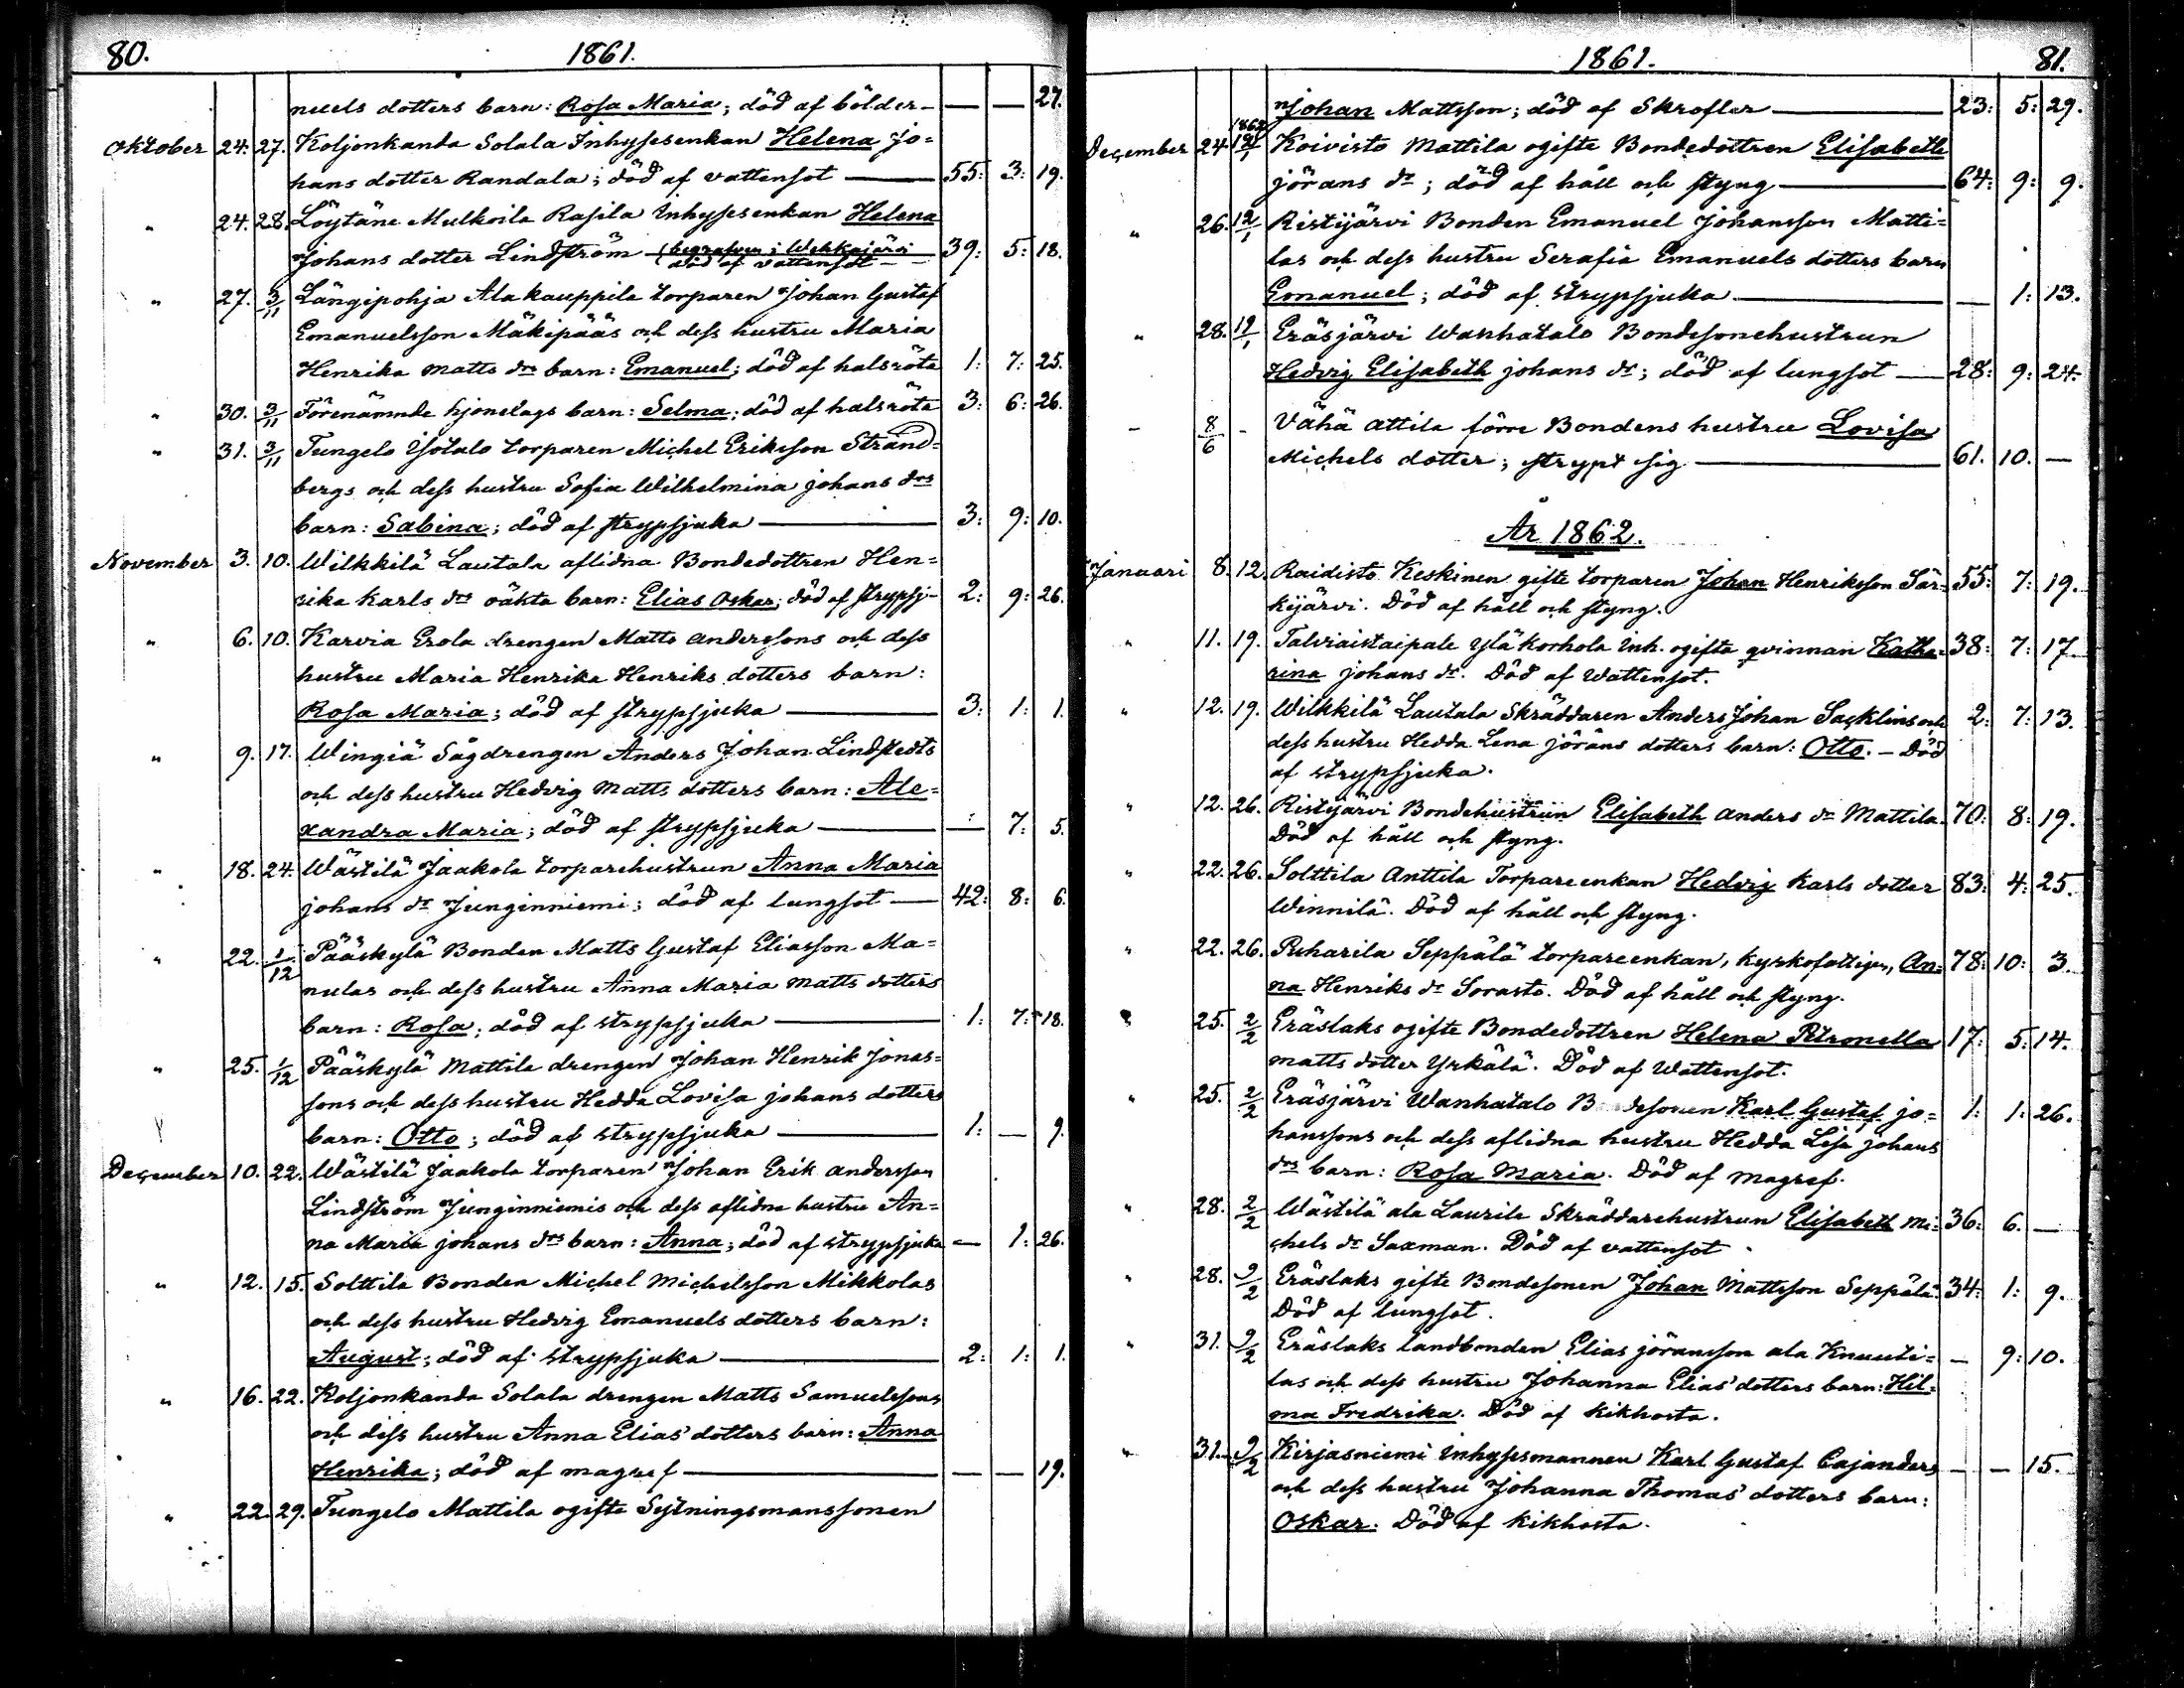 80. 1861.
nuels dotters barn: Rosa Maria; död af bölder — — — 27.
Oktober 24. 27. Koljonkanda Solala Inhysesenkan Helena Jo-
hans dotter Randala; död af vattensot — 55: 3: 19.
" 24. 28. Löytäne Mulkoila Rasila Inhysesenkan Helena
Johans dotter Lindström (begrafven i Wehkajärvi 39: 5: 18.
död af vattensot —
" 27. 3/11 Längipohja Alakauppila torparen Johan Gustaf
Emanuelsson Mäkipääs och dess hustru Maria
Henrika Matts drs barn: Emanuel; död af halsröta 1: 7: 25.
" 30. 3/11 Förenämnde hjonelags barn: Selma; död af halsröta 3: 6: 26.
" 31. 3/11 Tungelo Isotalo torparen Michel Eriksson Strand-
bergs och dess hustru Sofia Wilhelmina Johans drs
barn: Sabina; död af strypsjuka — 3: 9: 10.
November 3. 10. Wilkkilä Lautala aflidna Bondedottren Hen-
rika Karls drs oäkta barn: Elias Oskar; död af strypsj- 2: 9: 26.
" 6. 10. Karvia Erola drengen Matts Anderssons och dess
hustru Maria Henrika Henriks dotters barn:
Rosa Maria; död af strypsjuka — 3: 1: 1.
" 9. 17. Wingiä Sågdrengen Anders Johan Lindstedts
och dess hustru Hedvig Matts dotters barn: Ale-
xandra Maria; död af strypsjuka — — : 7: 5.
" 18. 24. Wästilä Jaakola torparehustrun Anna Maria
Johans dr Junginniemi; död af lungsot — 42: 8: 6.
" 22. 1/12 Pääskylä Bonden Matts Gustaf Eliasson Ma-
nulas och dess hustru Anna Maria Matts dotters
barn: Rosa; död af strypsjuka — 1: 7: 18.
" 25. 1/12 Pääskylä Mattila drengen Johan Henrik Jonas-
sons och dess hustru Hedda Lovisa Johans dotters
barn: Otto; död af strypsjuka — 1: — 9.
December 10. 22. Wästilä Jaakola torparen Johan Erik Andersson
Lindström Junginniemis och dess aflidna hustru An-
na Maria Johans drs barn: Anna; död af strypsjuka — 1: 26.
" 12. 15. Solttila Bonden Michel Michelsson Mikkolas
och dess hustru Hedvig Emanuels dotters barn:
August; död af strypsjuka — 2: 1: 1.
" 16. 22. Koljonkanda Solala drengen Matts Samuelssons
och dess hustru Anna Elias' dotters barn: Anna
Henrika; död af magref — — — 19.
" 22. 29. Tungelo Mattila ogifte Sytningsmanssonen
1861. 81.
Johan Mattsson; död af Skrofler — 23: 5: 29.
1862
December 24 12/1 Koivisto Mattila ogifte Bondedottren Elisabeth
Jörans dr; död af håll och styng — 64: 9: 9.
" 26. 12/1 Ristijärvi Bonden Emanuel Johansson Matti-
las och dess hustru Serafia Emanuels dotters barn
Emanuel; död af strypsjuka — — 1: 13.
" 28. 12/1 Eräsjärvi Wanhatalo Bondesonehustrun
Hedvig Elisabeth Johans dr; död af lungsot — 28: 9: 24.
- 8/6 - Vähä Attila förre Bondens hustru Lovisa
Michels dotter; strypt sig — 61. 10. —
År 1862.
Januari 8. 12. Raidisto Keskinen gifte torparen Johan Henriksson Sär- 55: 7: 19.
kijärvi. Död af håll och styng.
" 11. 19. Talviaistaipale Yläkorhola Inh. ogifta qvinnan Katha- 38: 7: 17.
rina Johans dr. Död af Wattensot.
" 12. 19. Wilkkilä Lautala Skräddaren Anders Johan Sacklins och 2: 7: 13.
dess hustru Hedda Lena Jörans dotters barn: Otto. — Död
af strypsjuka.
" 12. 26. Ristijärvi Bondehustrun Elisabeth Anders dr Mattila. 70: 8: 19.
Död af håll och styng.
" 22. 26. Solttila Anttila Torpareenkan Hedvig Karls dotter 83: 4: 25.
Winnilä. Död af håll och styng.
" 22. 26. Puharila Seppälä torpareenkan, kyrkofattigen, An- 78: 10: 3.
na Henriks dr Sorasto. Död af håll och styng.
" 25. 2/2 Eräslaks ogifte Bondedottren Helena Petronella 17: 5: 14.
Matts dotter Yrkälä. Död af Wattensot.
" 25. 2/2 Eräsjärvi Wanhatalo B dessonen Karl Gustaf Jo- 1: 1: 26.
hanssons och dess aflidna hustru Hedda Lisa Johans
drs barn: Rosa Maria. Död af magref.
" 28. 2/2 Wästilä ala Laurila Skräddarehustrun Elisabeth Mi- 36: 6. —
chels dr Saxman. Död af vattensot.
" 28. 9/2 Eräslaks gifte Bondesonen Johan Mattsson Seppälä. 34: 1: 9.
Död af lungsot.
" 31. 9/2 Eräslaks landbonden Elias Jöransson ala Knuuti- — 9: 10.
las och dess hustru Johanna Elias' dotters barn: Hil-
ma Fredrika. Död af kikhosta.
" 31. 9/2 Kirjasniemi Inhysesmannen Karl Gustaf Cajanders — — 15.
och dess hustru Johanna Thomas' dotters barn:
Oskar. Död af kikhosta.